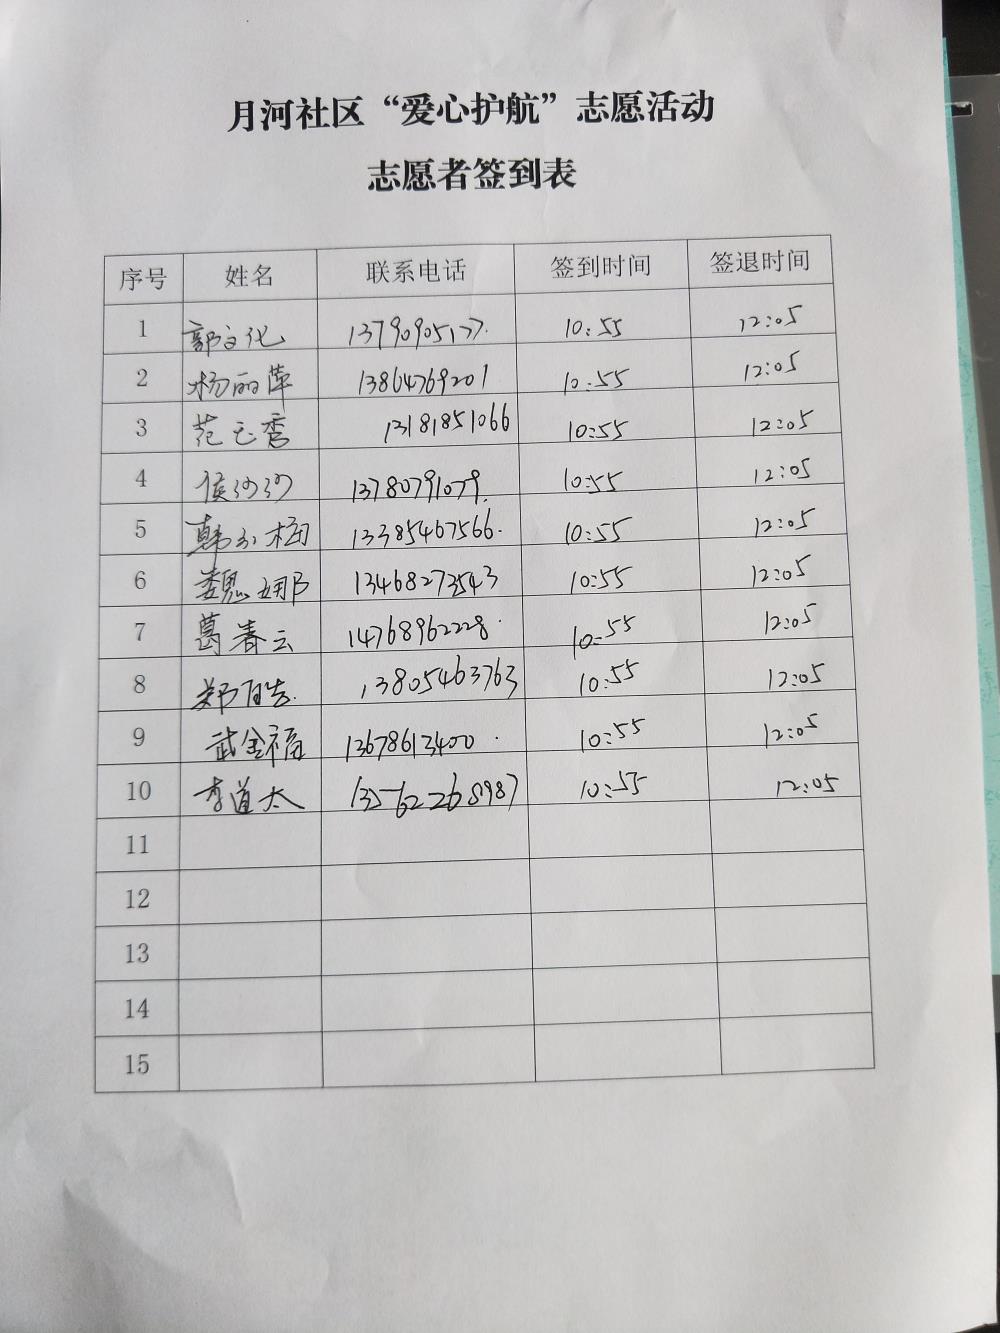 月河社区“爱心护航”志愿活动
志愿者签到表
序号 姓名 联系电话 签到时间 签退时间
1 郭文化 13790905177. 10:55 12:05
2 杨丽萍 13864769201 10:55 12:05
3 范 13181851066 10:55 12:05
4 侯沙沙 13780791079. 10:55 12:05
5 韩 13385467566. 10:55 12:05
6 魏娜 13468273543 10:55 12:05
7 葛春云 14768962228. 10:55 12:05
8 郑 13805463763 10:55 12:05
9 武金福 13678613400. 10:55 12:05
10 李道太 13562268987 10:55 12:05
11
12
13
14
15